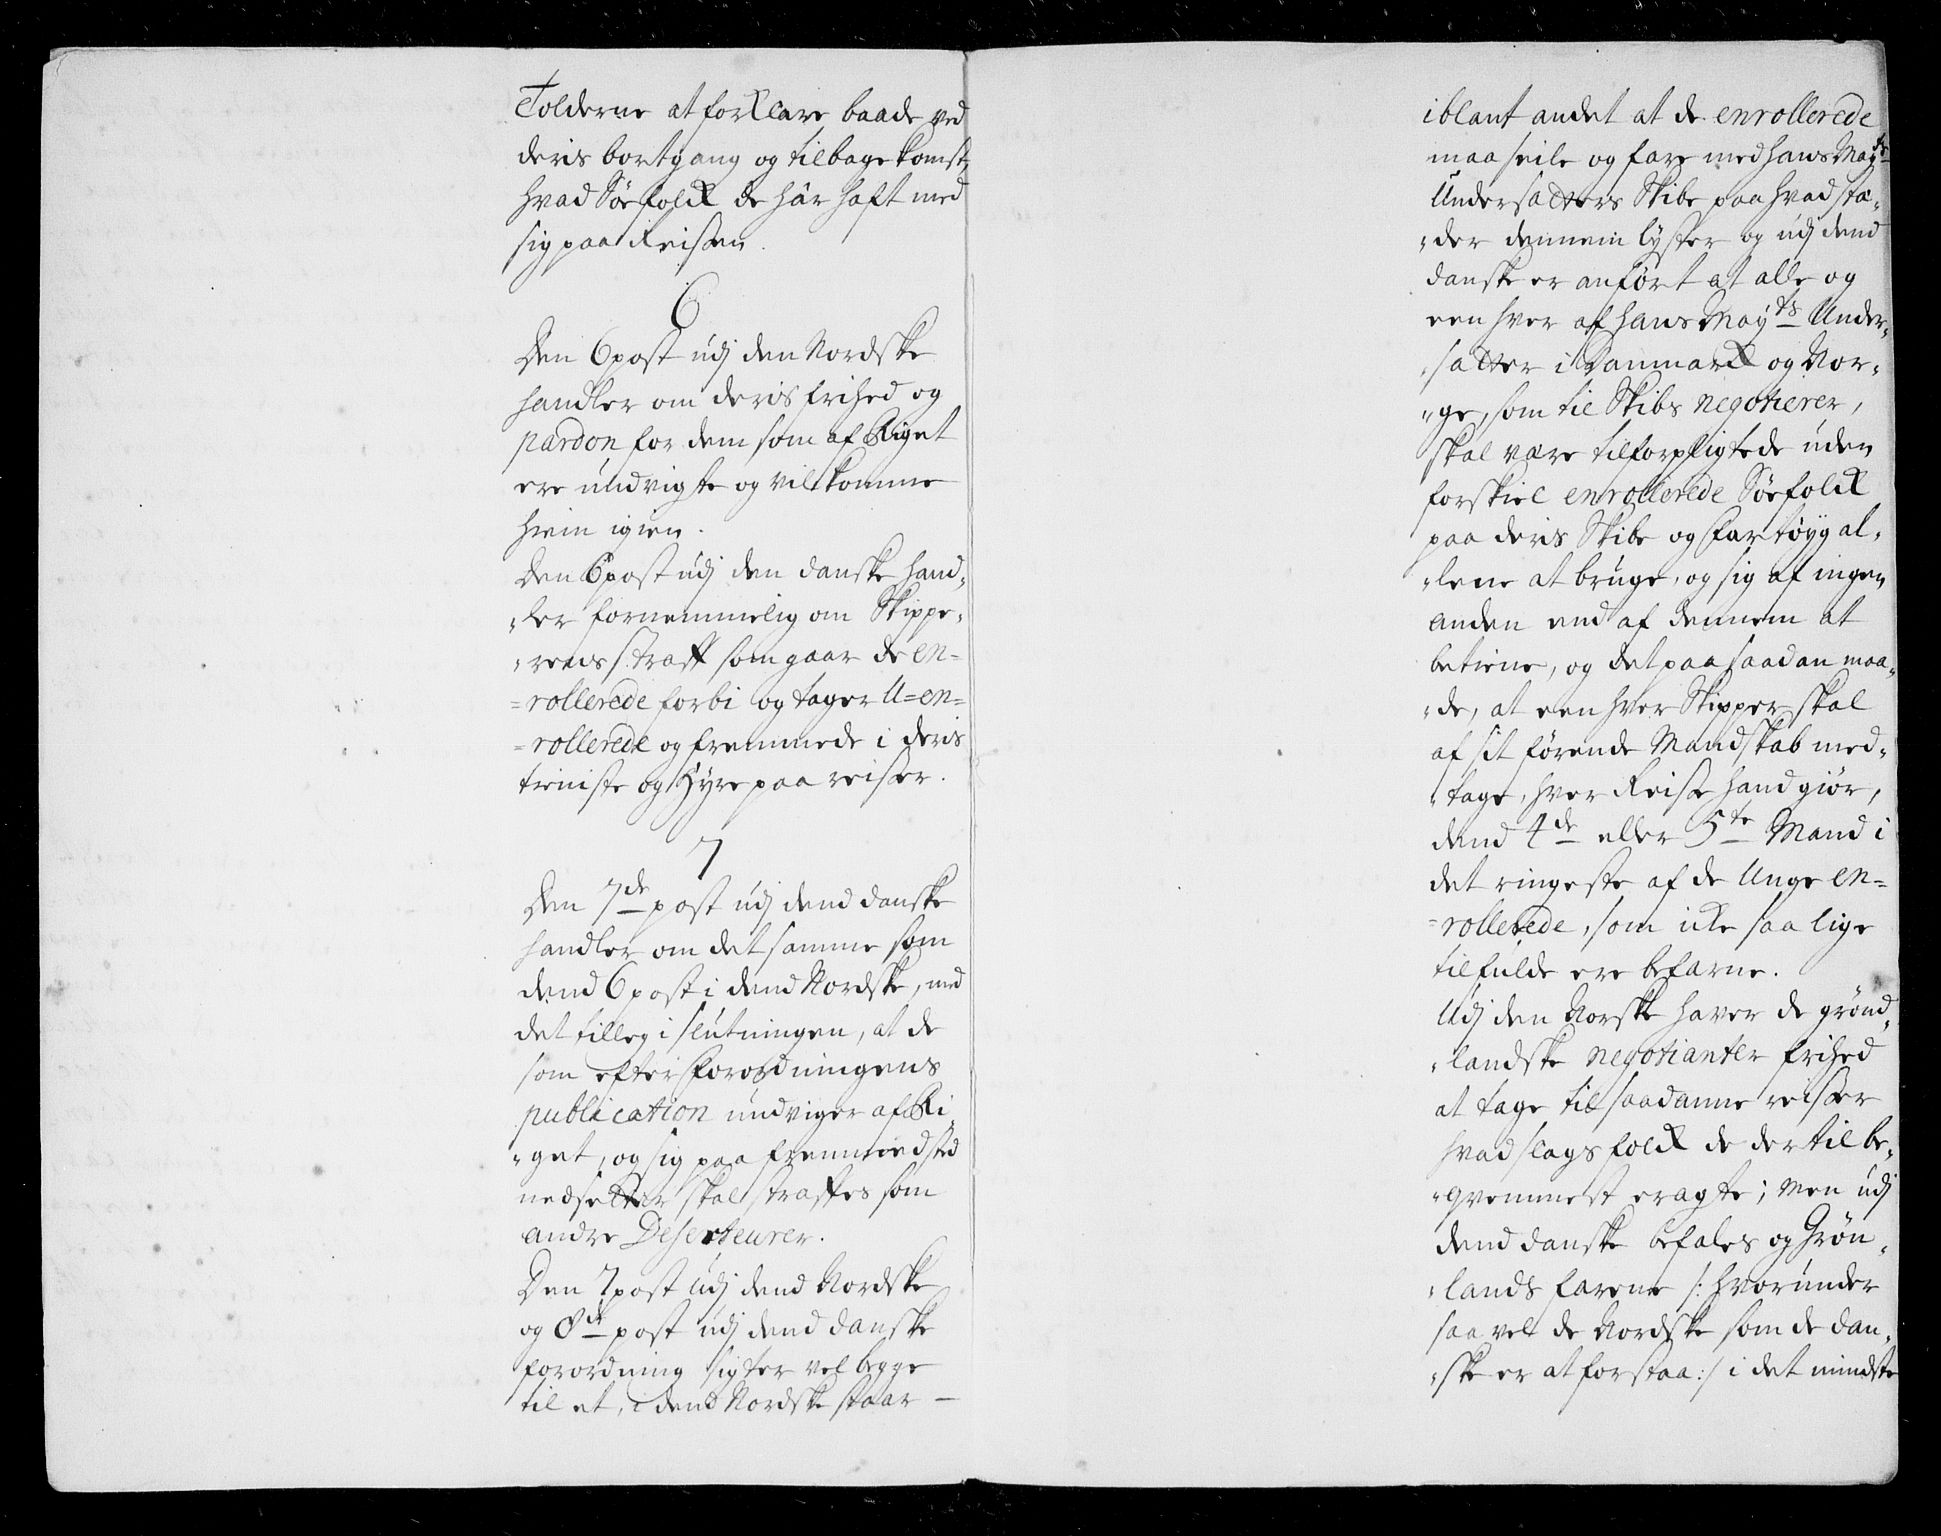 Tolderne at forklare baade ved
deris bortgang og tilbagekomst,
hvad Söefolk de här haft med
sig paa Reisen.
6
Den 6 post udj den Nordske
handler om deris frihed og
pardon for dem som af Riget
ere undvigte og vil komme
hiem igien.
Den 6 post udj den danske hand„
„ler fornemmelig om Skippe„
„rens straff som gaar de en=
=rollerede forbi og tager U=en=
=rollerede og fremmede i deris
tieniste og Hyre paa reiser.
7
Den 7de post udj dend danske
handler om det samme som
dend 6 post i dend Nordske, med
det tilleg i slutningen, at de
som efter forordningens
publication undviger af Ri„
„get, og sig paa fremmed sted
nedsetter skal straffes som
andre Deserteurer.
Den 7 post udj dend Nordske
og 8de post udj dend danske
forordning sigter vel begge
til et, i dend Nordske staar –
iblant andet at de enrollerede
maa seile og fare med hans Mayts
Undersatters Skibe paa hvad stæ„
„der dennem lyster og udj dend
danske er anfört at alle og
een hver af hans Mayts Under„
„satter i Danmark og Nor„
„ge, som til Skibs negotierer,
skal være tilforpligtede uden
forskiel enrollerede Söefolk
paa deris Skibe og Fartöyg al„
„lene at bruge, og sig af ingen
anden end af dennem at
betiene, og det paa saadan maa„
„de, at een hver Skipper skal
af sit förende Mandskab med„
„tage, hver Reise hand giör,
dend 4de eller 5te Mand i
det ringeste af de Unge en=
=rollerede, som icke saa lige
tilfulde ere befarne.
Udj den Norske haver de grönd„
„landske negotianter frihed
at tage til saadanne reiser
hvad slags folk de der til be„
„qvemmest eragte; Men udj
dend danske befales og Grön„
„lands farene /: hvorunder
saa vel de Nordske som de dan„
„ske er at forstaa :/ i det mindste